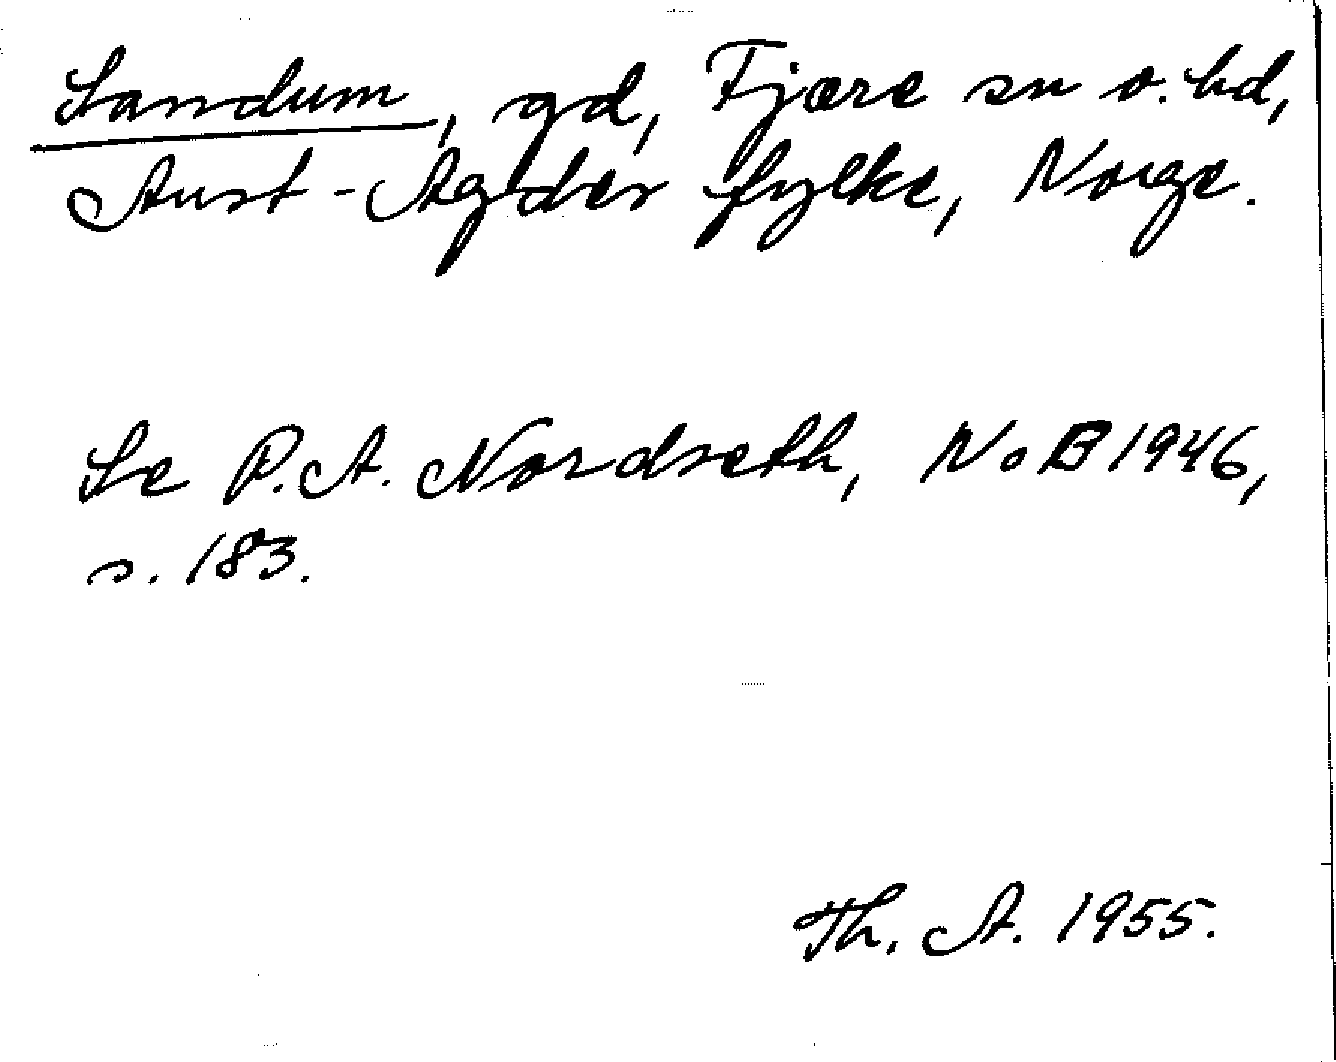 Sandum, gd, Fjære sn o. hd,
Aust-Agder fylke, Norge.
Se P. A. Nordseth, NoB 1946,
s. 183.
Th. A. 1955.